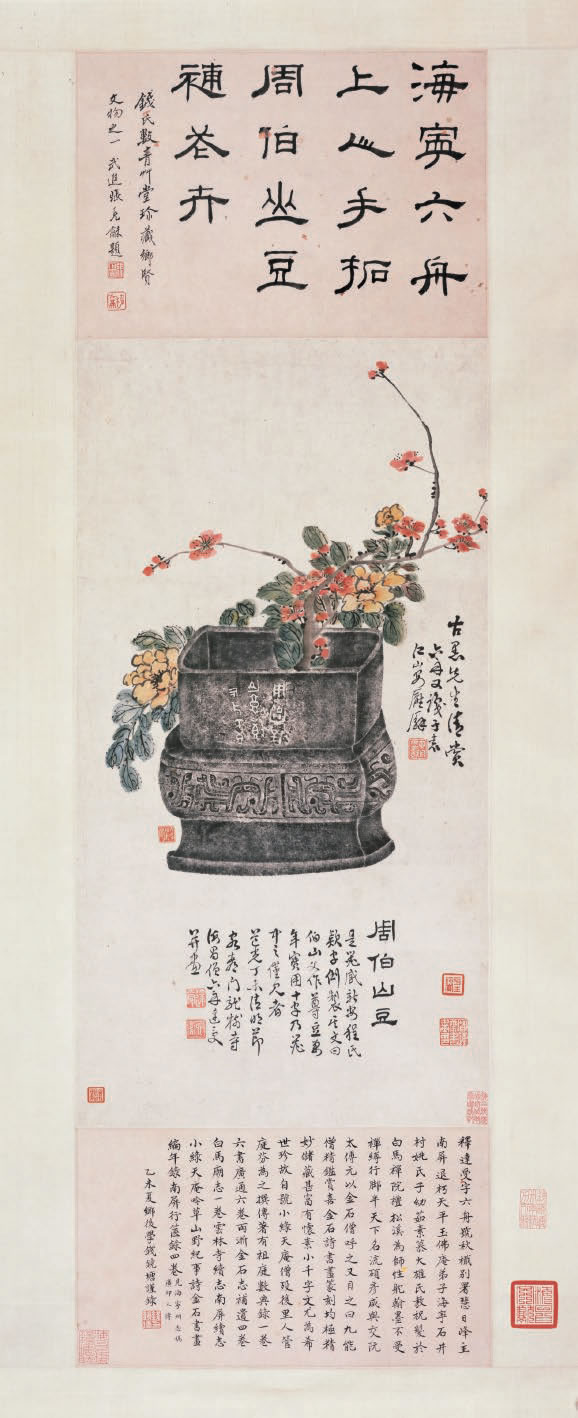 海寧六舟
上人手拓
周伯山豆
補花卉
錢氏數青艸堂珍藏鄉賢
文物之一 武進張
題
古愚先生清賞
六舟又識于袁
仁山
周伯山豆
是器咸新安程氏
款字倒製其文曰
伯山父作尊豆萬
年寶用十字乃器
中之僅見者
道光丁未清明節
客
龍
寺
海昌僧六舟達受
并畫
釋達受字六舟號秋檝別署慧日峰主
南屏退朽天平玉佛庵弟子海寧石井
村姚氏子幼茹素慕大雄氏教祝髮於
白馬禪院禮松溪為師性耽翰墨不受
禪縛行腳半天下名流碩彥咸與交阮
太傅元以金石僧呼之又目之曰九能
僧精鑑賞喜金石詩書畫篆刻均極精
妙儲藏甚富有懷素小千字文尤為希
世珍故自號小綠天庵僧歿後里人管
庭芬為之撰傳著有祖庭數典錄一卷
六書廣通六卷兩浙金石志補遺四卷
白馬廟志一卷雲林寺續志南屏續志
小綠天庵吟草山野紀事詩金石書畫
編年錄南屏行篋錄四卷見海寧州志稿
乙未夏鄉後學錢鏡塘謹錄